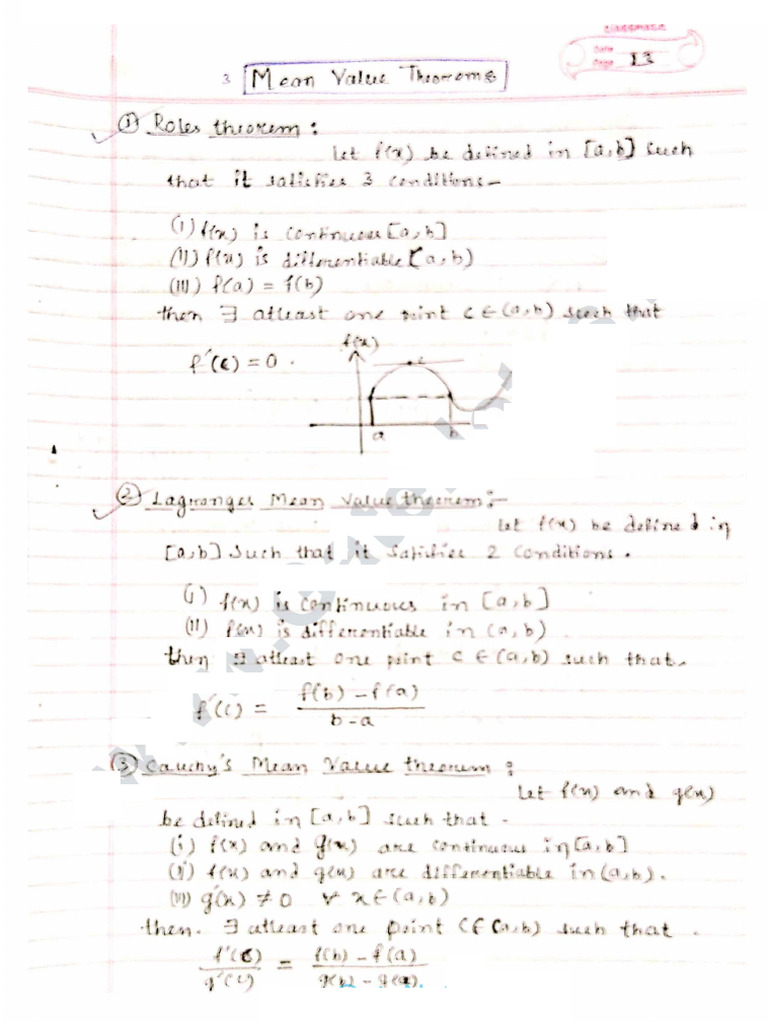 classmate
Date
Page 13
3 Mean Value Theorems
① Roles theorem :
Let f(x) be defined in [a,b] such
that it satisfies 3 conditions –
(I) f(x) is continuous [a,b]
(II) f(x) is differentiable (a,b)
(III) f(a) = f(b)
then ∃ atleast one point c ∈ (a,b) such that
f'(c) = 0 .
f(x)
c
a b
② Lagranges Mean Value theorem :–
Let f(x) be defined in
[a,b] such that it satisfies 2 conditions .
(I) f(x) is continuous in [a,b]
(II) f(x) is differentiable in (a,b)
then ∃ atleast one point c ∈ (a,b) such that.
f'(c) = f(b) – f(a) / b – a
③ Cauchy's Mean Value theorem :
Let f(x) and g(x)
be defined in [a,b] such that .
(i) f(x) and g(x) are continuous in [a,b]
(ii) f(x) and g(x) are differentiable in (a,b).
(III) g'(x) ≠ 0 ∀ x ∈ (a,b)
then. ∃ atleast one point c ∈ (a,b) such that .
f'(c) / g'(c) = f(b) – f(a) / g(b) – g(a).